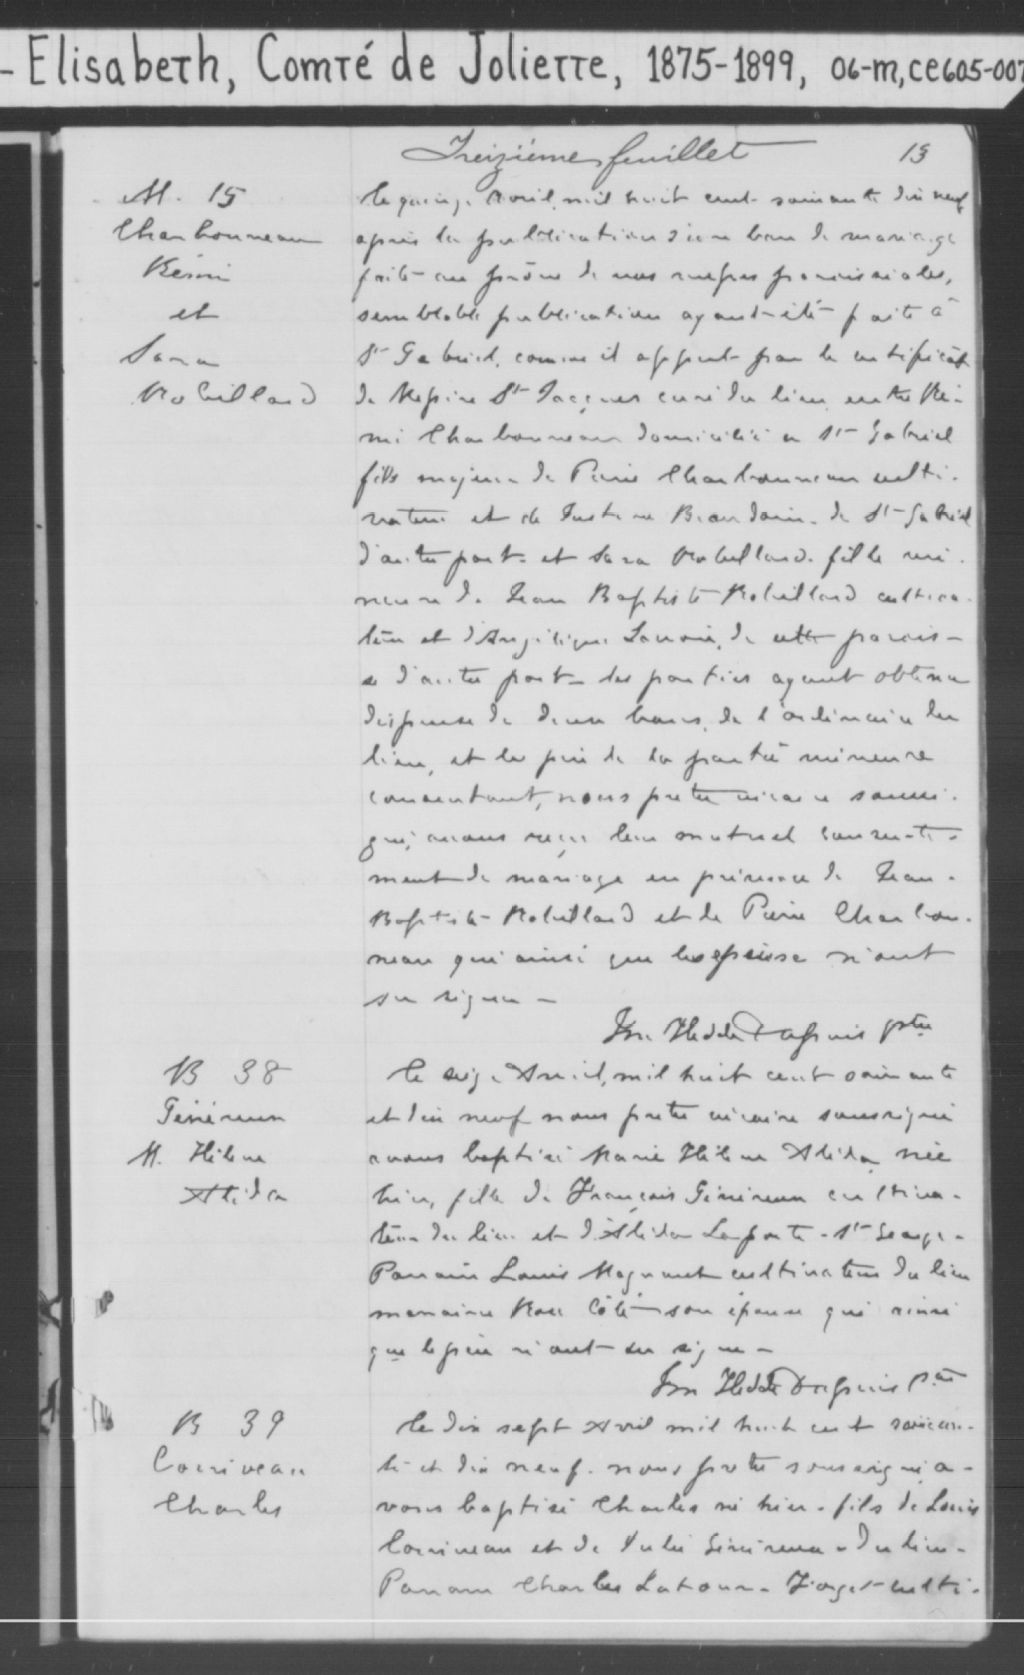 - Elisabeth, Comté de Joliette, 1875-1899, 06-m,ce605-007
Treizième feuillet 13
M. 15
Charbonneau
Rémi
et
Sara
Robillard
le quinze Avril mil huit cent soixante dix neuf
après la publication d'un ban de mariage
faite au prône de nos messes paroissiales,
semblable publication ayant été faite à
St Gabriel, comme il appert par le certificat
de Messire St Jacques curé du lieu entre Ré-
mi Charbonneau domicilié à St Gabriel
fils majeur de Pierre Charbonneau culti-
vateur et de Beaudoin de St Gabriel
d'autre part et Sara Robillard fille mi-
neure de Jean Baptiste Robillard cultiva-
teur et d'Angélique de cette parois-
se d'autre part les parties ayant obtenu
dispense de deux bans de l'ordinaire du
lieu, et le père de la partie mineure
consentant, nous prêtre vicaire soussi-
gné, avons reçu leur mutuel consente-
ment de mariage en présence de Jean-
Baptiste Robillard et de Pierre Charbon-
neau qui ainsi que les épouse n'ont
su signer -
Jos. Dupuis ptre
B 38
Généreux
M. Hélène
Alida
le seize Avril, mil huit cent soixante
et dix neuf nous prêtre vicaire soussigné
avons baptisé Marie Hélène Alida née
hier, fille de François Généreux cultiva-
teur du lieu et d'Alida Laporte - St George -
Parrain Louis Magnant cultivateur du lieu
marraine Rose Côté son épouse qui ainsi
que le père n'ont su signer -
Jos. Dupuis Ptre
B 39
Corriveau
Charles
le dix sept Avril mil huit cent soixan-
te et dix neuf. nous prêtre soussigné a-
vons baptisé Charles né hier - fils de Louis
Corriveau et de Julie Généreux - du lieu -
Parrain Charles Latour - Forget culti-